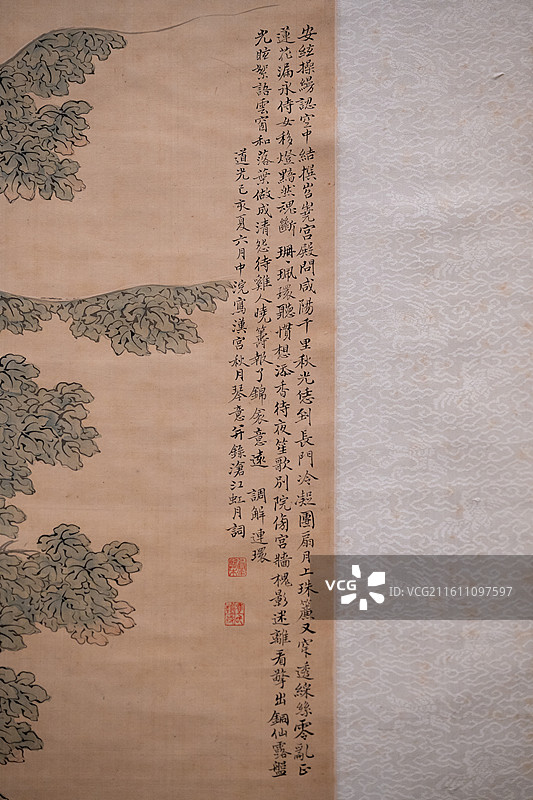 安絃操縵認空中結撰岧嶤宮殿問咸陽千里秋光恁到長門冷凝團扇月上珠簾又穿透綵絲零亂正
蓮花漏永侍女移燈黯然魂斷 珊珊環聽慣想添香待夜笙歌別院傍宮牆槐影迷離看擎出銅仙露盤
光眩絮語雲窗和落葉做成清怨待雞人曉籌報了錦衾意遠 調解連環
道光己亥夏六月中浣寫漢宮秋月琴意并錄滄江虹月詞
VCG
ID:VCG211611097597